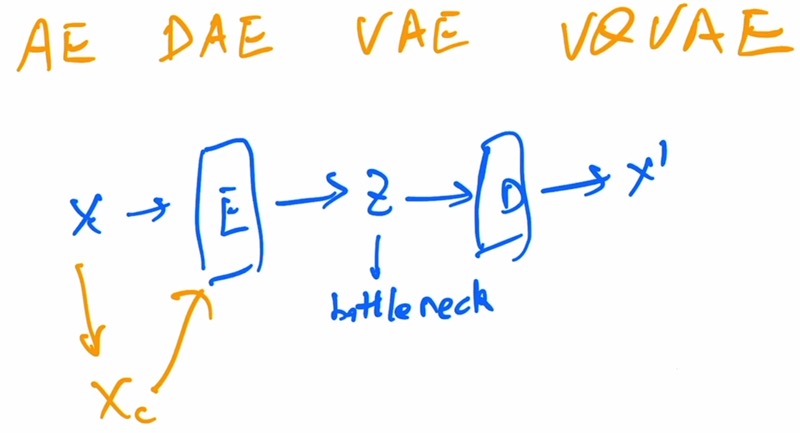 AE DAE VAE VQVAE
X → E → Z → D → X'
bottleneck
Xc